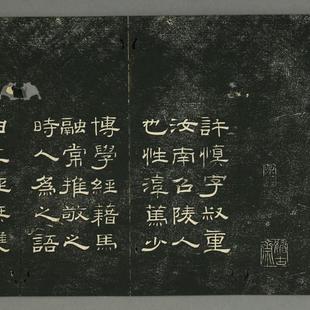 許慎字叔重
汝南召陵人
也性淳篤少
博學經籍馬
融常推敬之
時人為之語